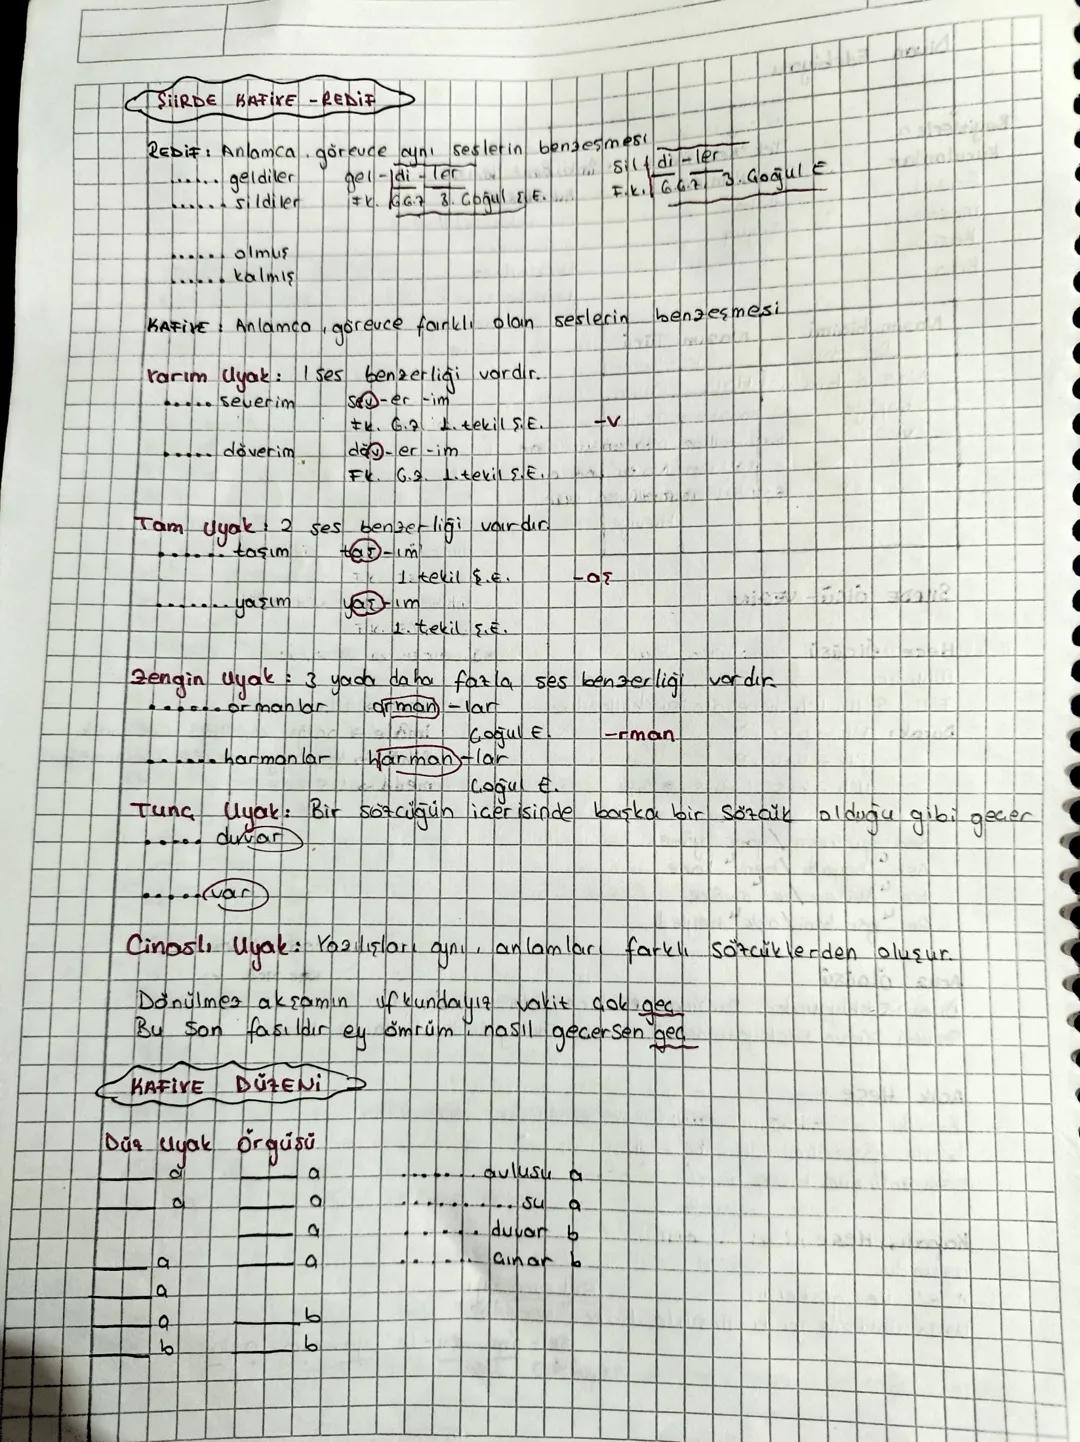 ŞİİRDE KAFİYE - REDİF
REDİF: Anlamca, görevce aynı seslerin benzeşmesi
...... geldiler gel-di-ler sil-di-ler
...... sildiler F.k. G.G.Z 3. Çoğul Ş.E. F.k. G.G.Z 3. Çoğul E
...... olmuş
...... kalmış
KAFİYE: Anlamca, görevce farklı olan seslerin benzeşmesi
Yarım Uyak: 1 ses benzerliği vardır.
..... severim sev-er-im
F.k. G.Z. 1. tekil Ş.E. -v
..... döverim döv-er-im
F.k. G.Z. 1. tekil Ş.E.
Tam Uyak: 2 ses benzerliği vardır
...... taşım taş-ım
1. tekil Ş.E. -aş
....... yaşım yaş-ım
1. tekil Ş.E.
Zengin Uyak: 3 yada daha fazla ses benzerliği vardır
...... ormanlar orman-lar
Çoğul E. -rman
...... harmanlar harman-lar
Çoğul E.
Tunç Uyak: Bir sözcüğün içerisinde başka bir sözcük olduğu gibi geçer
..... duvar
..... var
Cinaslı Uyak: Yazılışları aynı, anlamları farklı sözcüklerden oluşur.
Dönülmez akşamın ufkundayız vakit çok geç
Bu son fasıldır ey ömrüm, nasıl geçersen geç
KAFİYE DÜZENİ
Düz Uyak Örgüsü
___ a ___ a ........ avlusu a
___ a ___ a ........... su a
___ a ...... duvar b
___ a ___ a ...... çınar b
___ a
___ a ___ b
___ b ___ b